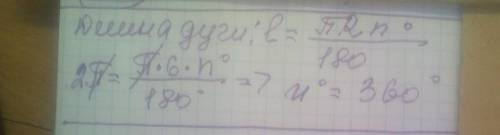 Длина дуги: l = ПRn° / 180
2П = П·6·n° / 180° => n° = 360°